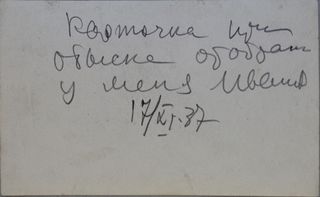 Карточка при
обыске отобрана
у меня Иванов
17/XI-37